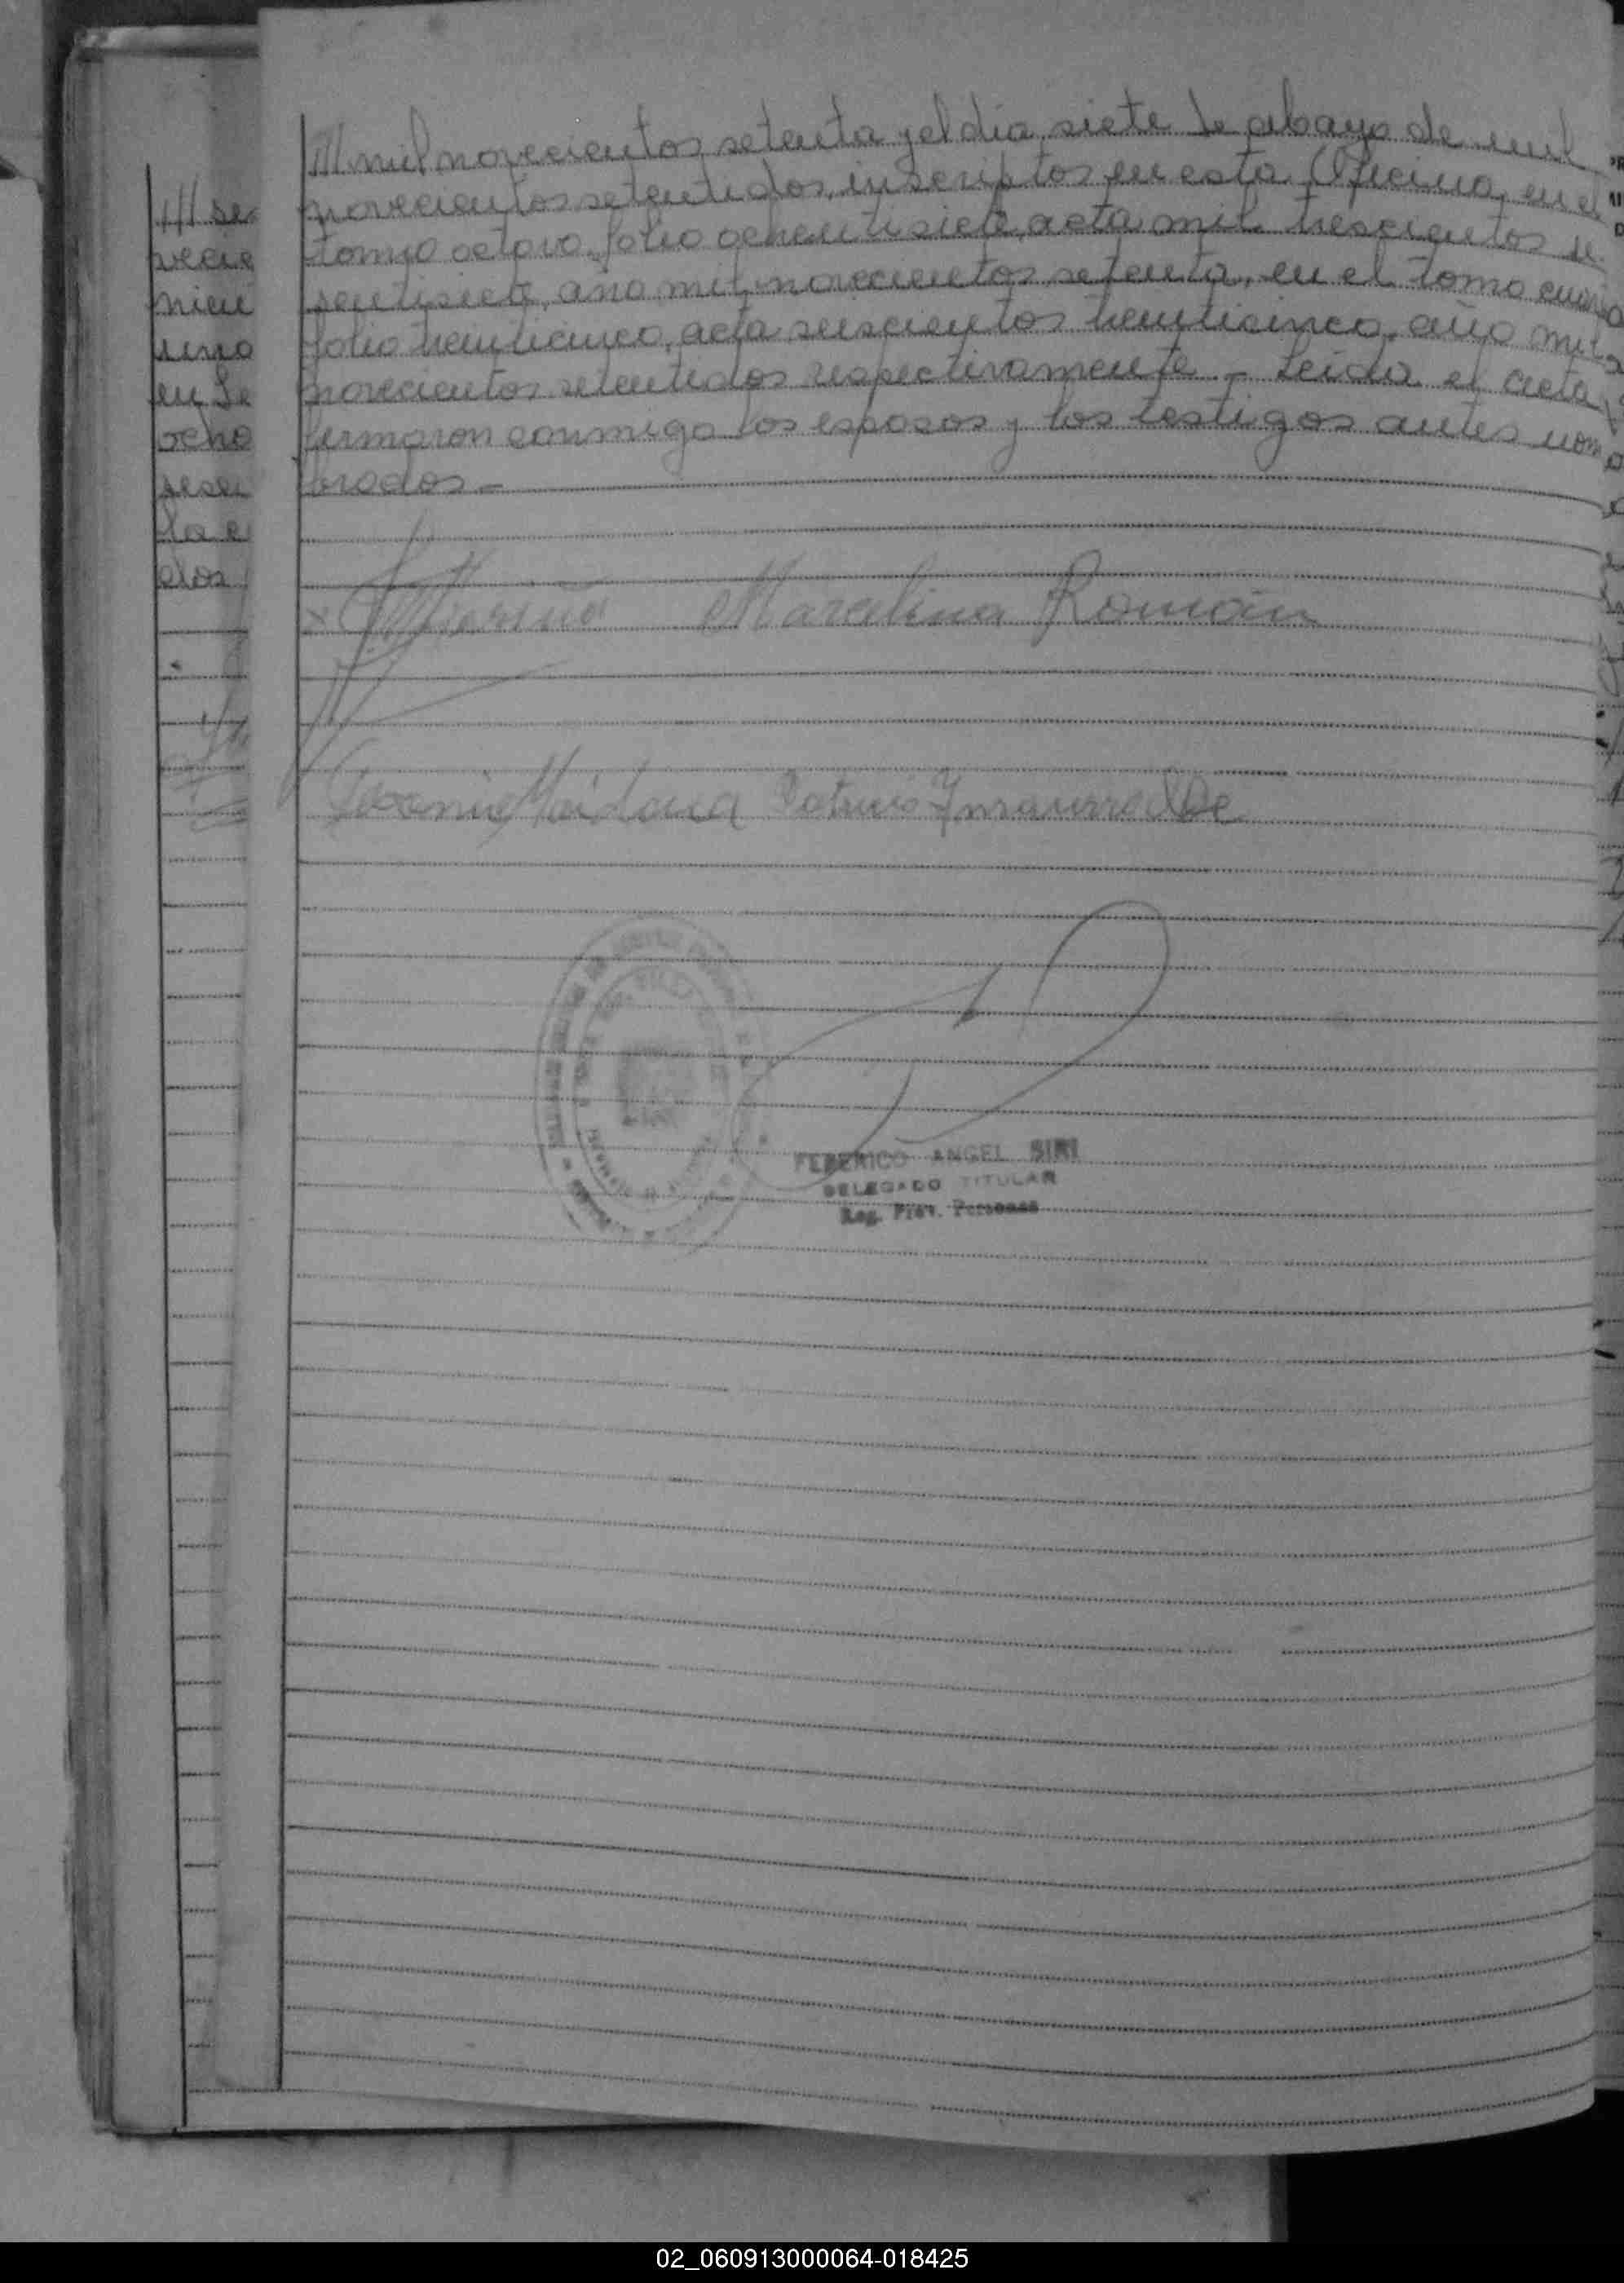 /// mil novecientos setenta y el día siete de mayo de mil
novecientos setentidos, inscriptos en esta Oficina, en el
tomo octavo, folio ochentisiete, acta mil trescientos se
sentisiete, año mil novecientos setenta, en el tomo cuarto
folio treinticinco, acta seiscientos treinticinco, año mil
novecientos setentidos respectivamente.- Leída el acta,
firmaron conmigo los esposos y los testigos antes nom
brados.-
/// se
vecie
nien
uno
en Se
ocho
sesen
la e
dos
Marcelina Román
Maidana Insaurralde
FEDERICO ANGEL SIRI
DELEGADO TITULAR
Reg. Prov. Personas
02_060913000064-018425